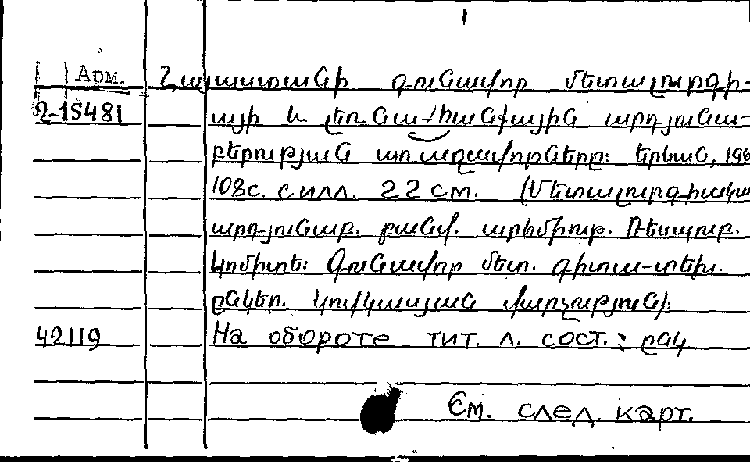 1
Арм. Հայաստանի գունավոր մետալուրգի-
2-15481 այի և լեռնա-հանքային արդյունա-
բերության առաջավորները: Երևան, 196
108с. с илл. 22 см. (Մետալուրգիական
արդյունաբ. բանվ. արհմիութ. Ռեսպուբ.
կոմիտե: Գունավոր մետ. գիտա-տեխ.
ընկեր. կովկասյան վարչություն):
42119 На обороте тит. л. сост.: ընկ
См. след. карт.